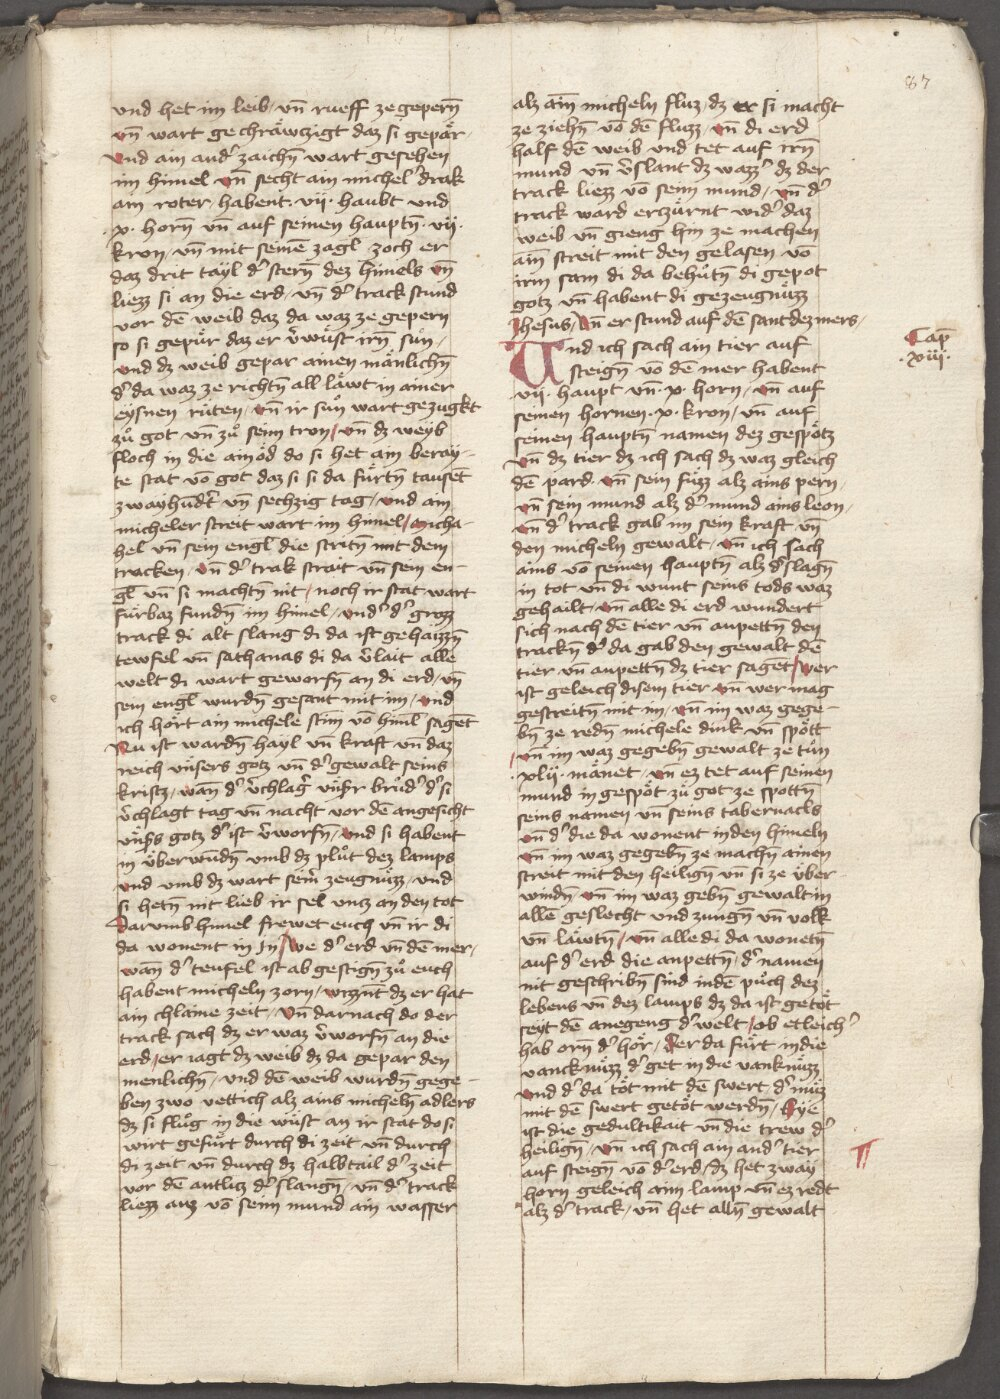 87
und het im leib / vn̄ rueff ze gepern̄
vn̄ wart gechräwczigt daz si gepär
und ain and᷑ zaichn̄ wart gesehen
im himel vn̄ secht ain michel᷑ drak
ain roter / habent · vij · haubt und
· x · horn̄ vn̄ auf seinen hauptn̄ · vij ·
kron / vn̄ mit seinē zagl zoch er
daz drit tayl d᷑ stern̄ dez himels vn̄
liezz si an die erd / vn̄ d᷑ track stund
vor dē weib daz da waz ze gepern
so si gepür daz er v᷑wüst irn̄ sun /
und dz weib gepar ainen mänlichn̄
d᷑ da waz ze richtn̄ all läwt in ainer
eysnen rüten / vn̄ ir sun̊ wart gezugkt
zů got vn̄ zů seim tron / vn̄ dz weyb
floch in die ainöd do si het ain beray-
te stat vō got daz si si da fürtn̄ tausēt
zwayhūdt᷑ vn̄ sechzig tag / und ain
micheler streit wart im himel / micha-
hel vn̄ sein engl die stritn̄ mit dem
tracken / vn̄ d᷑ trak strait vn̄ sein en-
gl vn̄ si machtn̄ nit / noch ir stat wart
fürbaz fundn̄ im himel / und᷑ d᷑ grozz
track di alt slang di da ist gehaizzn̄
tewfel vn̄ sathanas di da v᷑lait alle
welt di wart geworfn̄ an di erd / vn̄
sein engl wurdn̄ gesant mit im / und
ich hört ain michele stim vō himl sagēt
Nu ist wardn̄ hayl vn̄ kraft vn̄ daz
reich unsers gotz vn̄ d᷑ gewalt seins
kristz / wan̄ d᷑ v᷑chlag᷑ vns᷑r brüd᷑ d᷑ si
v᷑chlagt tag vn̄ nacht vor dē angesicht
vns᷑s gotz d᷑ ist v᷑worfn̄ / und si habent
in überwūdn̄ umb dz plüt dez lamps
und umb dz wart seinr᷑ zeugnüzz / und
si hetn̄ nit lieb ir sel uncz an den tot
darumb himel frewet euch vn̄ ir di
da wonent in In / we d᷑ erd vn̄ dē mer /
wan̄ d᷑ teufel ist ab gestign̄ zů euch
habent micheln zorn / wizznt dz er hat
ain chlaine zeit / vn̄ darnach do der
track sach dz er waz v᷑worfn̄ an die
erd / er iagt dz weib dz da gepar den
menlichn̄ / und dē weib wurdn̄ gege-
ben zwo vettich alz ains micheln̄ adlers
dz si flüg in die wüst an ir stat do si
wirt gefürt durch di zeit vn̄ durch
di zeit vn̄ durch dz halbtail d᷑ zeit
vor dē antlicz d᷑ slangn̄ / vn̄ d᷑ track
liezz auz vō seim mund ain wasser
alz aim̄ micheln fluz / dz er si macht
ze ziehn̄ vō dē fluzz / vn̄ di erd
half dē weib und tet auf irn̄
mund vn̄ v᷑slant dz wazz᷑ dz der
track liezz vō seim mund / vn̄ d᷑
track ward erzürnt wid᷑ daz
weib vn̄ gieng hin ze machen
ain̄ streit mit den gelasen vō
irm sam di da behütn̄ di gepot
gotz vn̄ habent di gezeugnüzz
Jhesus / vn̄ er stund auf dē sant dez mers /
Cap̄
· xiij ·
Und ich sach ain tier auf
steign̄ vō dē mer habent
vij · haupt vn̄ · x · horn / vn̄ auf
seinen hornen · x · kron / vn̄ auf
seinen hauptn̄ namen dez gespötz
vn̄ dz tier dz ich sach dz waz gleich
dē pard · vn̄ sein füzz alz ains pern /
vn̄ sein mund alz d᷑ mund ains leon /
vn̄ d᷑ track gab im sein kraft vn̄
den micheln gewalt / vn̄ ich sach
ains vō seinen hauptn̄ alz d᷑slagn̄
in tot vn̄ di wunt seins tods waz
gehailt / vn̄ alle di erd wundert
sich nach dē tier vn̄ anpettn̄ den
trackn̄ d᷑ da gab den gewalt dē
tier vn̄ anpettn̄ dz tier sagēt / wer
ist geleich disem tier vn̄ wer mag
gestreitn̄ mit im / vn̄ im waz gege-
bn̄ ze redn̄ michele dink vn̄ spött
/ vn̄ im waz gegebn̄ gewalt ze tün
· xlij · mänet / vn̄ ez tet auf seinen
mund in gespöt zů got ze spottn̄
seins namen vn̄ seins tabernacls
vn̄ d᷑ die da wonent in den himeln
vn̄ im waz gegebn̄ ze machn̄ ainen
streit mit den heilign̄ vn̄ si ze über-
windn̄ vn̄ im waz gebn̄ gewalt in
allē geslecht und zungn̄ vn̄ volk
vn̄ läwtn̄ / vn̄ alle di da wonetn̄
auf d᷑ erd die anpettn̄ / d᷑ namen
nit geschribn̄ sind in dē půch dez
lebens vn̄ dez lamps dz da ist getöt
seyt dē anegeng d᷑ welt / ob etleich᷑
hab orn̄ d᷑ hör / Der da fürt in die
vancknüzz d᷑ get in die vanknüzz
und d᷑ da töt mit dē swert d᷑ müz
mit dē swert getöt werdn̄ / hye
ist die gedultikait vn̄ die trew d᷑
heilign̄ / vn̄ ich sach ain and᷑ tier
auf steign̄ vō d᷑ erd / dz het zway
horn geleich aim lamp vn̄ ez redt
alz d᷑ track / vn̄ het alln̄ gewalt